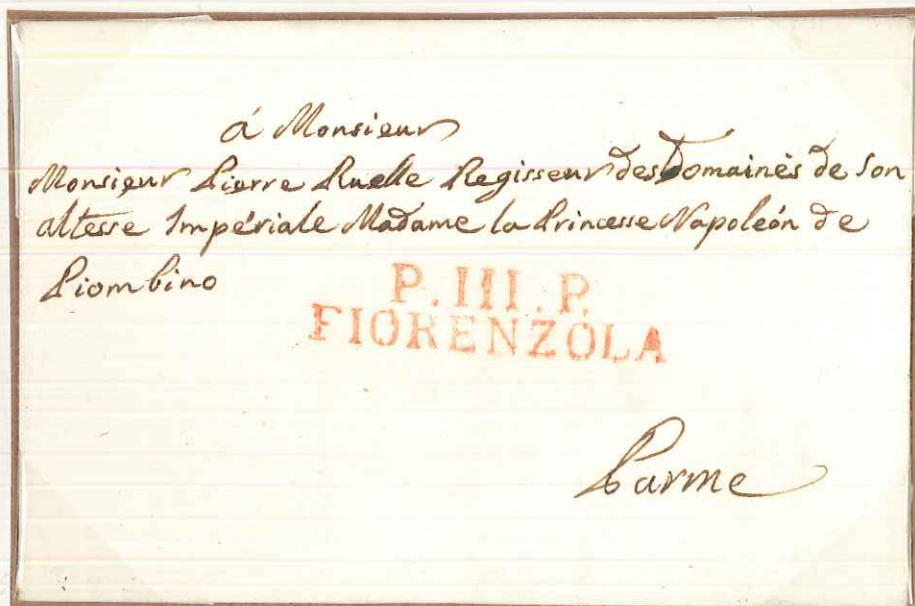 á Monsieur
Monsieur Pierre Ruelle Regisseur des Domainès de Son
altesse Impériale Madame la Princesse Napoleón de
Piombino
P.III.P.
FIORENZOLA
Parme